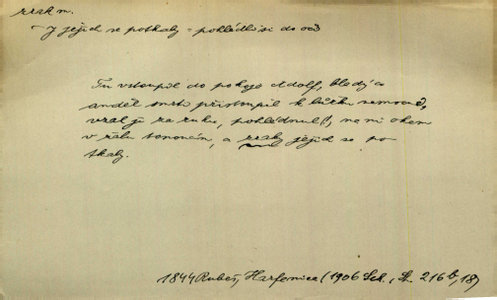 zrak m.
- y jejich se potkaly = pohlédli si do očí
Tu vstoupil do pokoje Adolf, bledý co
anděl smrti přistoupil k lůžku nemocné,
vzal ji za ruku, pohlédnul(!) na ni okem
v žalu, a zraky jejich se po-
tkaly.
1844 Rubeš, Harfenice (1906 Sel., Sp. 216b, 18)